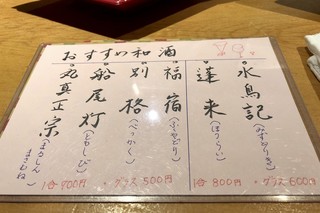 おすすめ和酒
水鳥記（みずとりき）
蓮来（ほうらい）
福宿（ふくやどり）
別格（べっかく）
船尾灯（ともしび）
丸真正宗（まるしんまさむね）
1合 800円 ・グラス 600円
1合 900円 ・グラス 500円